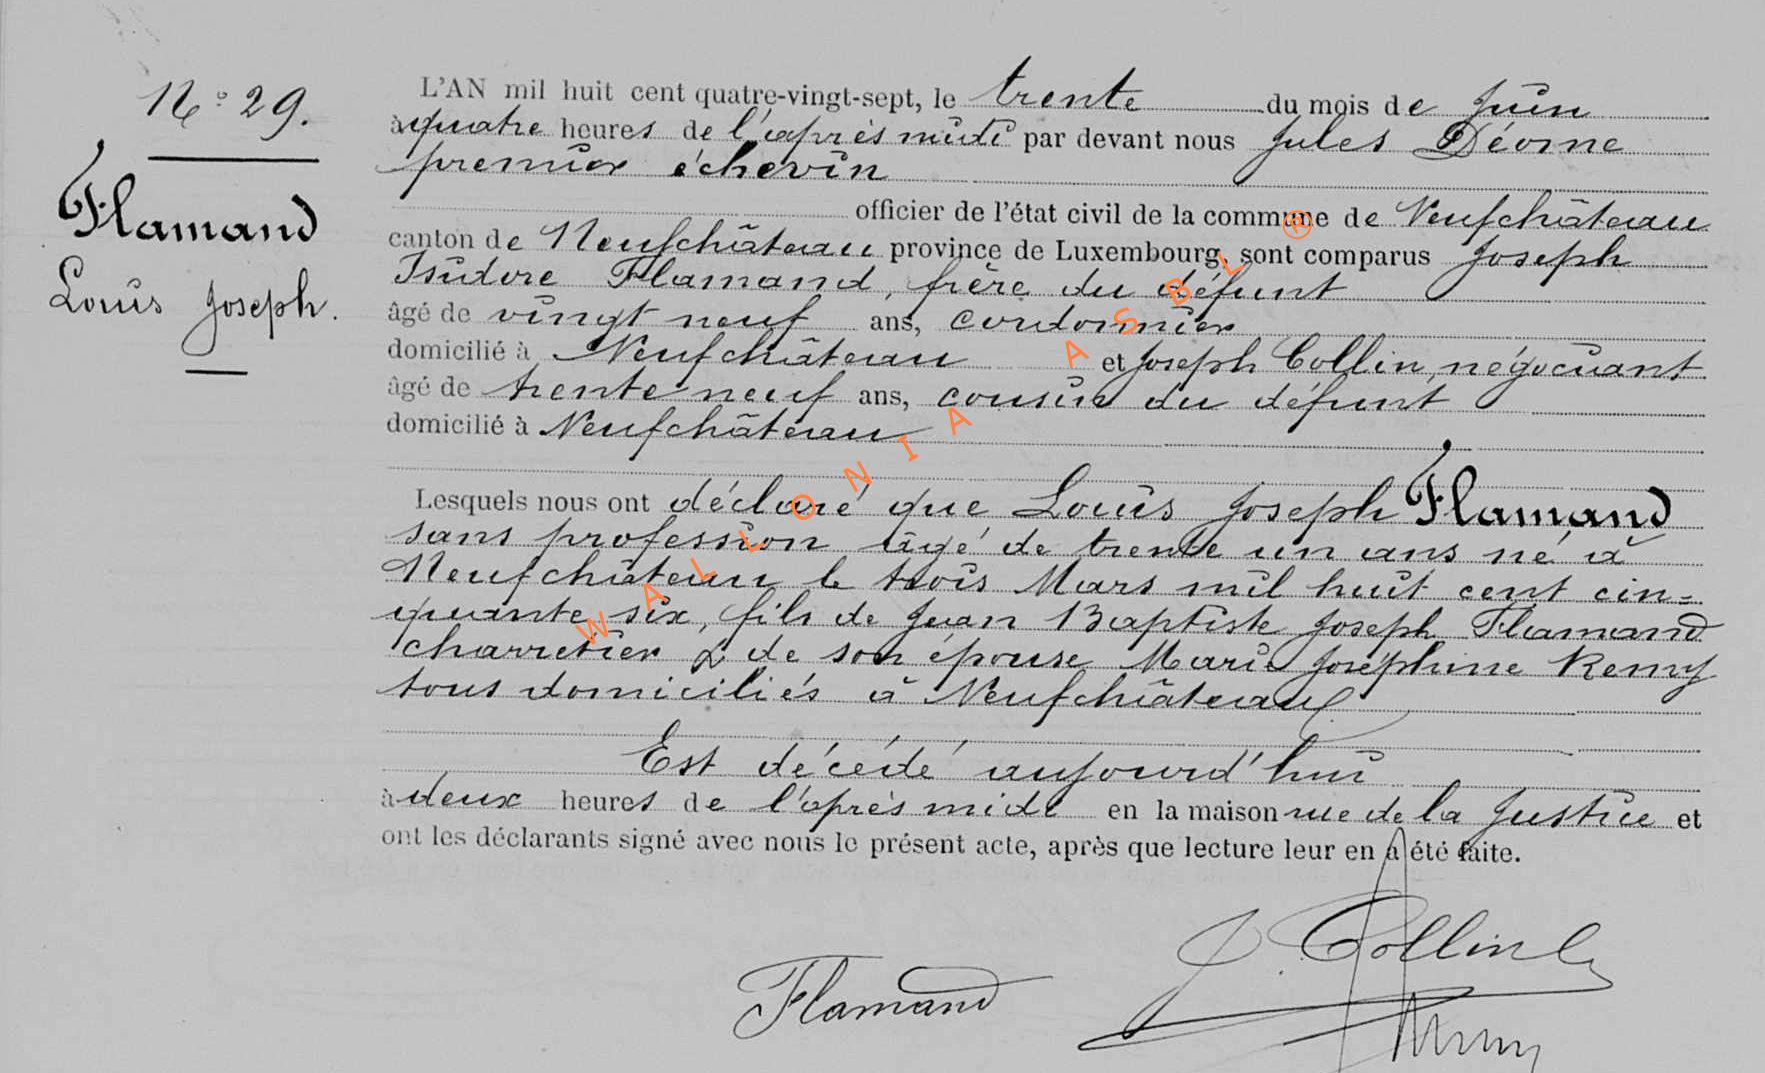 N° 29.
Flamand
Louis Joseph.
L'AN mil huit cent quatre-vingt-sept, le trente du mois de Juin
à quatre heures de l'après midi par devant nous Jules Déome
premier échevin
officier de l'état civil de la commune de Neufchâteau
canton de Neufchâteau province de Luxembourg, sont comparus Joseph
Isidore Flamand, frère du défunt
âgé de vingt neuf ans, cordonnier
domicilié à Neufchâteau et Joseph Collin, négociant
âgé de trente neuf ans, cousin du défunt
domicilié à Neufchâteau
Lesquels nous ont déclaré que Louis Joseph Flamand
sans profession âgé de trente un ans né à
Neufchâteau le trois Mars mil huit cent cin=
quante six, fils de Jean Baptiste Joseph Flamand
charretier & de son épouse Marie Joséphine Remy
tous domiciliés à Neufchâteau
Est décédé aujourd'hui
à deux heures de l'après midi en la maison rue de la Justice et
ont les déclarants signé avec nous le présent acte, après que lecture leur en a été faite.
J. Collin
Flamand
WALLONIA ASBL ®